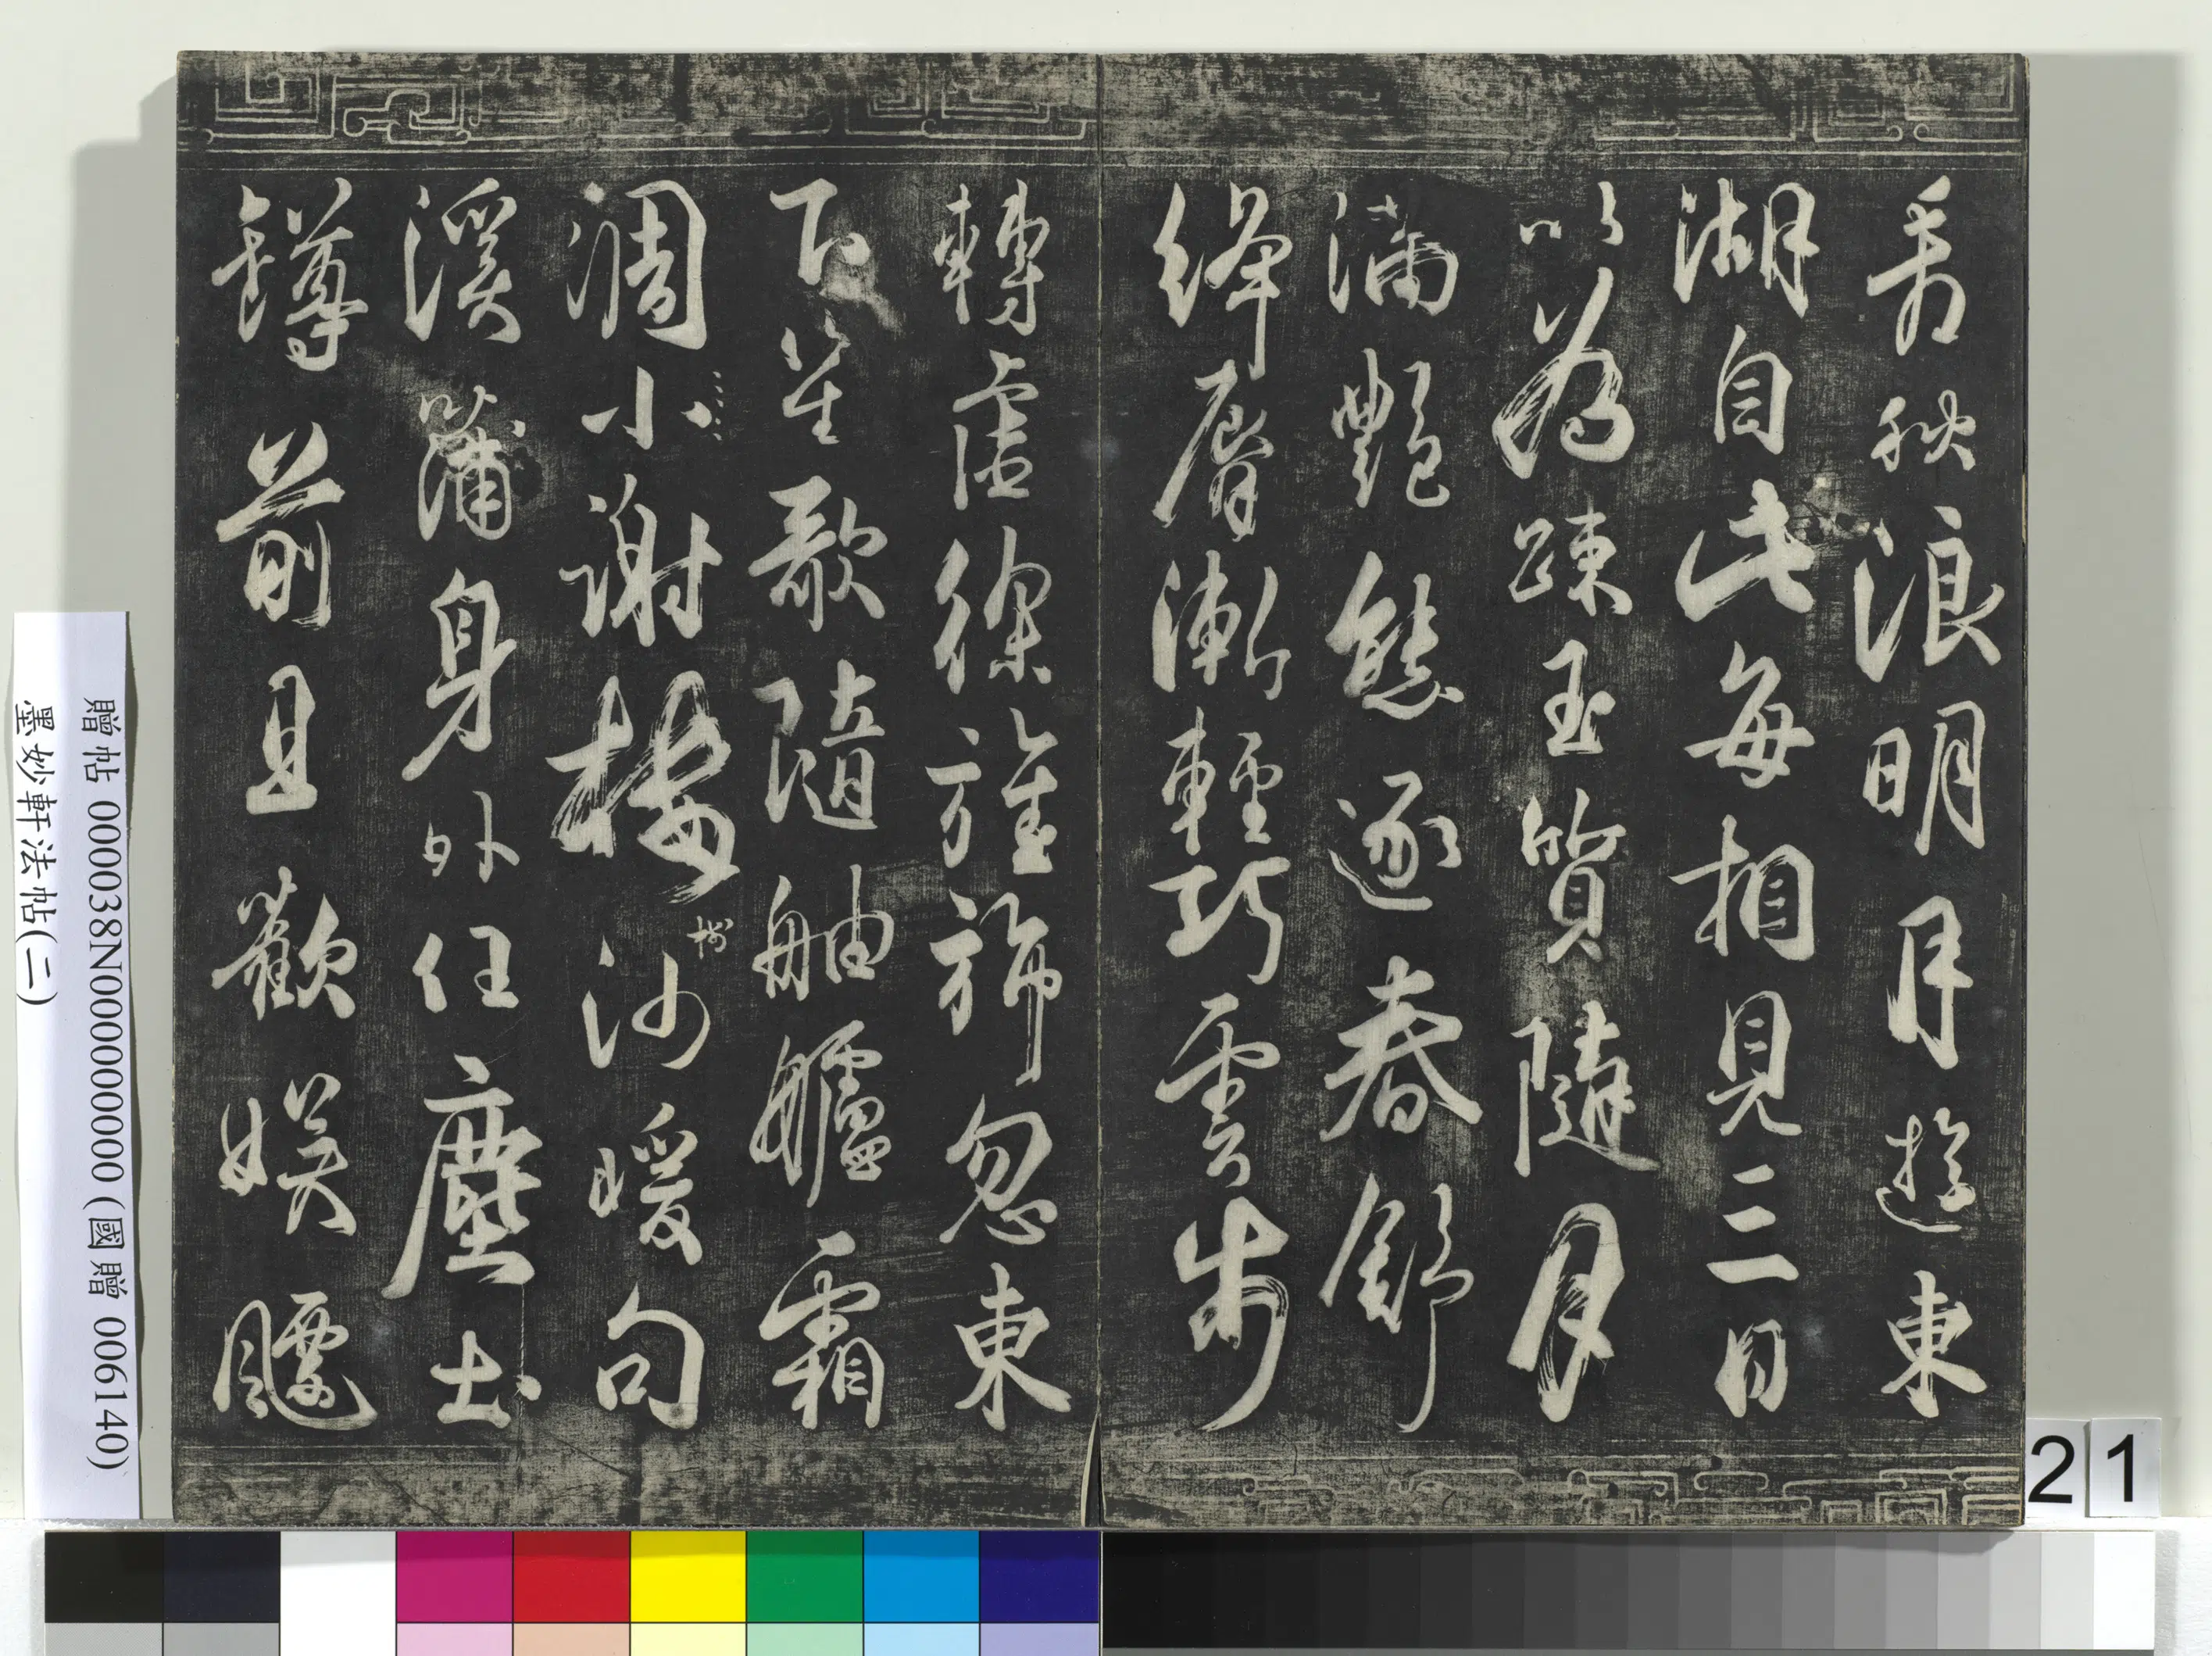 看秋浪明月遊東
湖自此每相見三日
以為踈玉質隨月
滿艷態逐春舒
絳脣漸輕巧雲步
轉虛徐旌旆忽東
下笙歌隨舳艫霜
凋小謝樓樹沙暖句
溪蒲身外任塵土
罇前且歡娛飄
贈帖 000038N000000000(國贈 006140)
墨妙軒法帖(二)
21